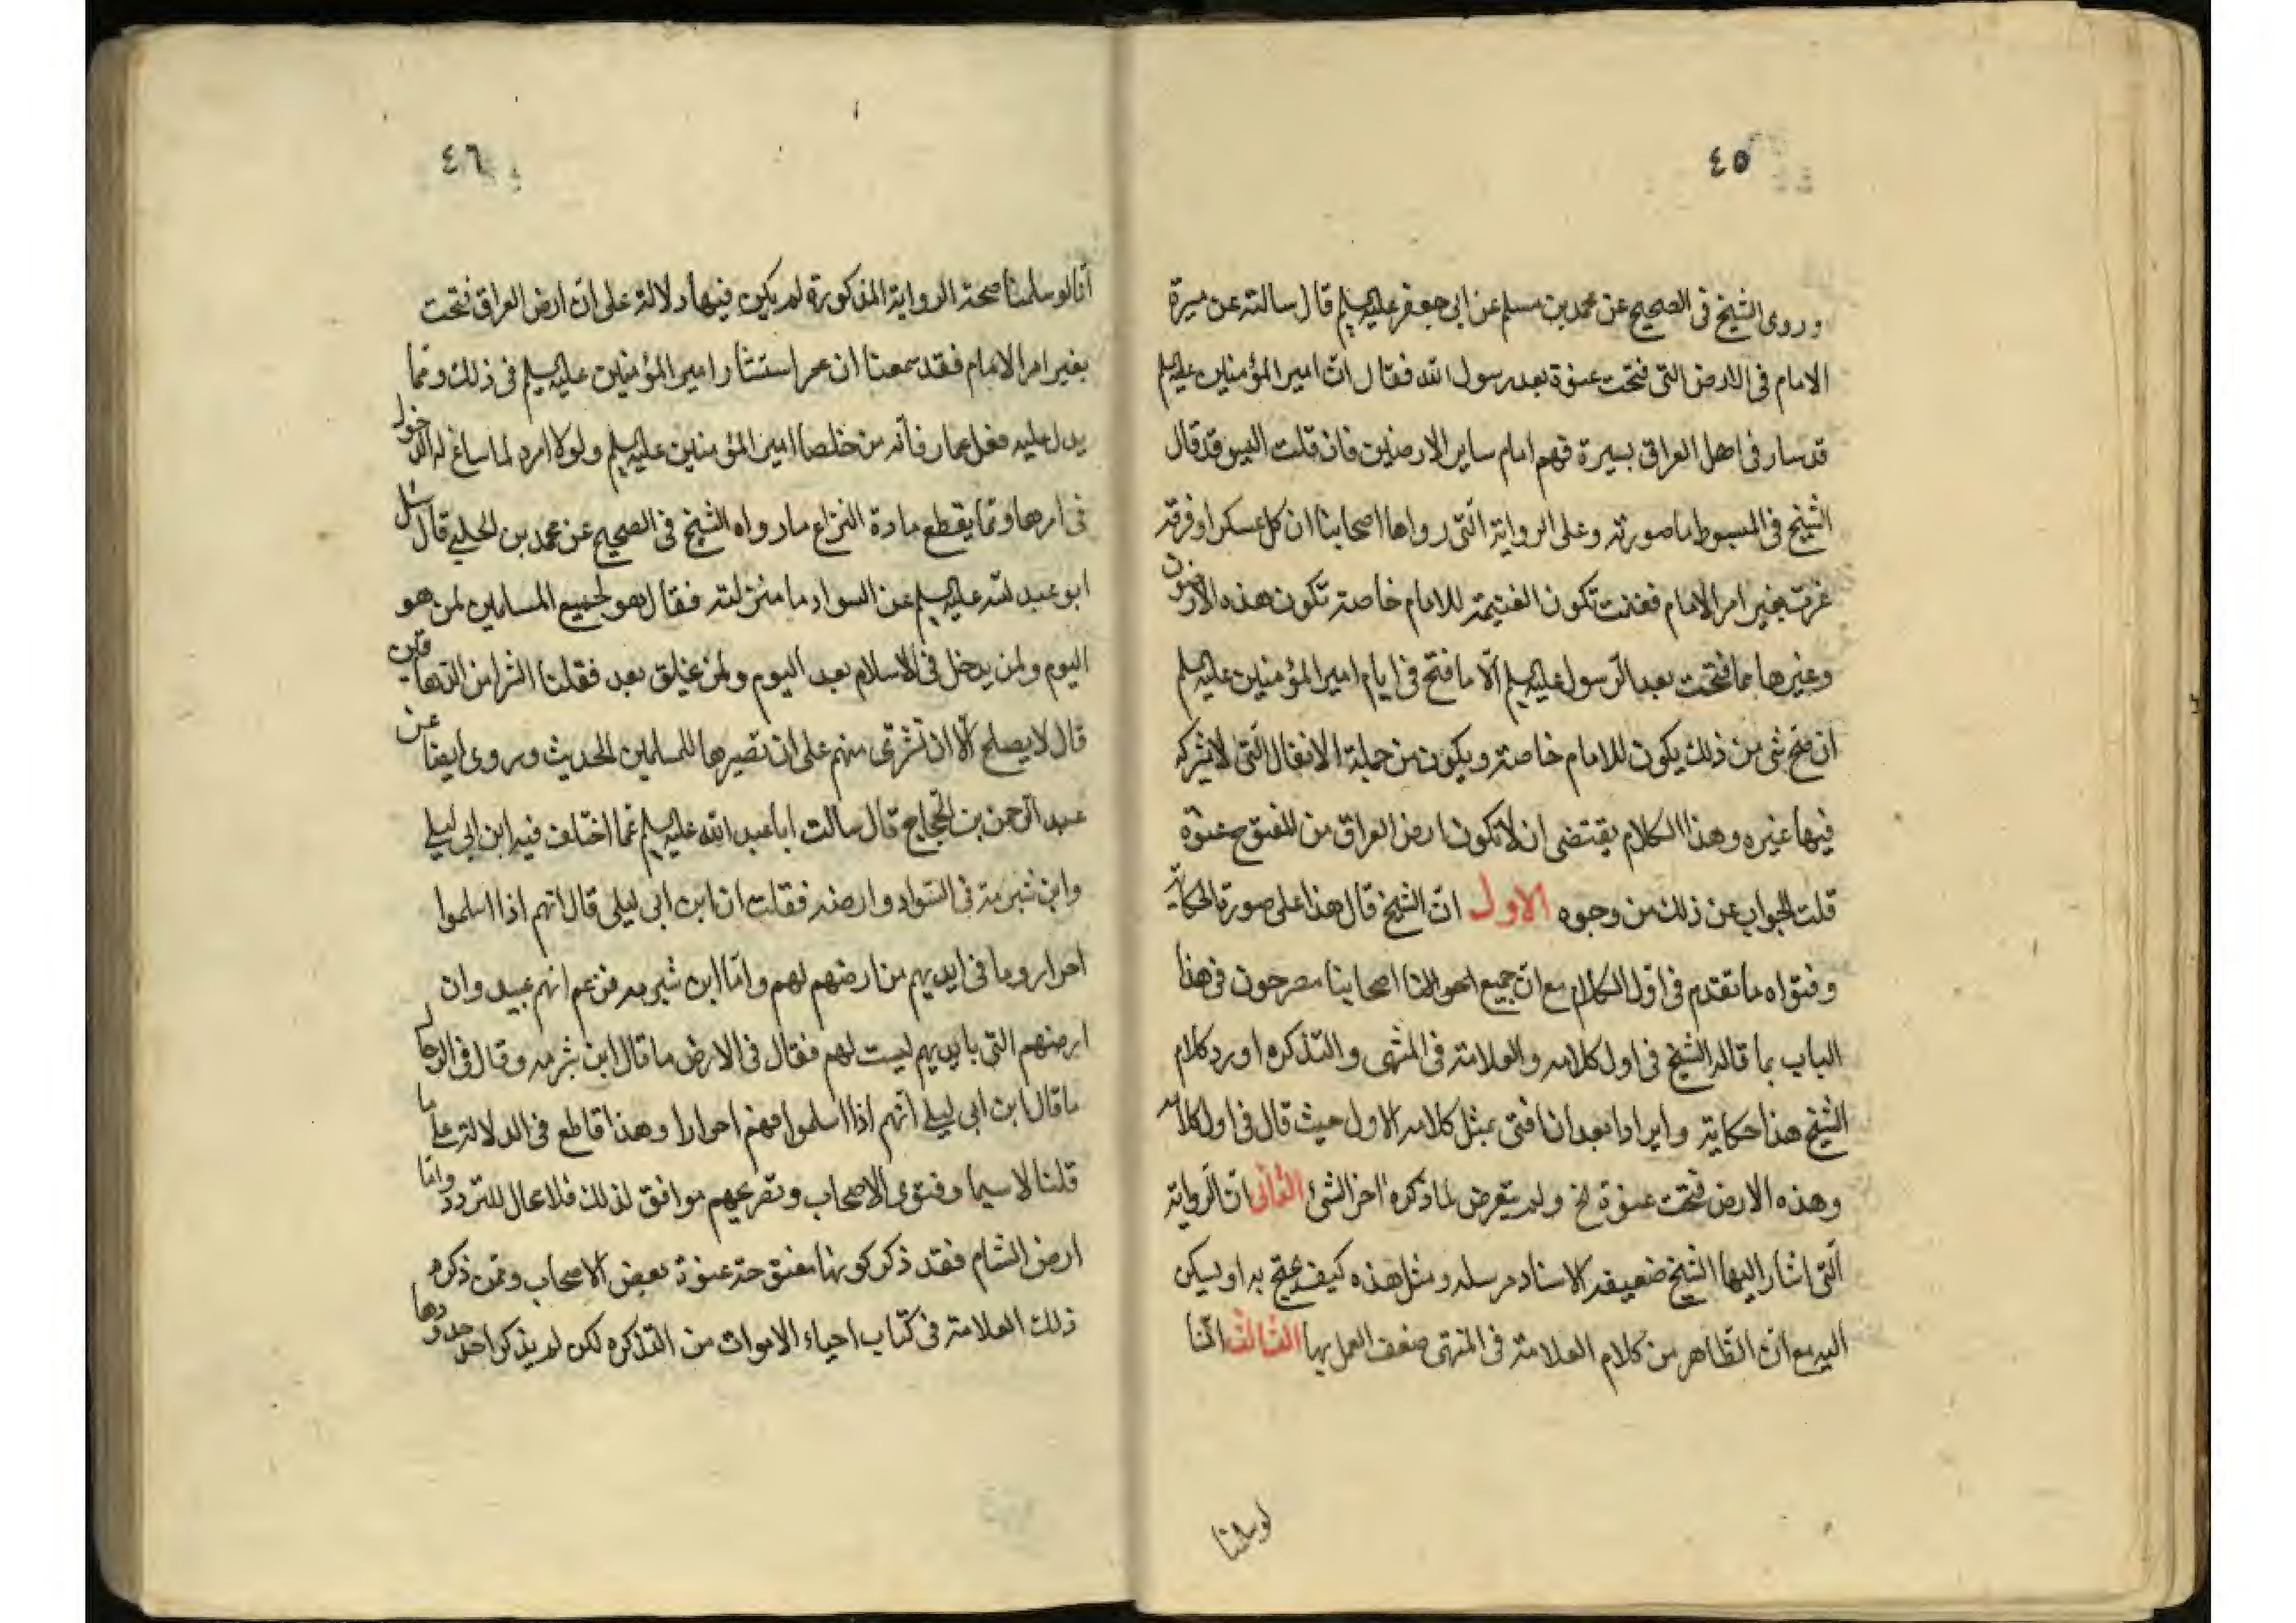 ٤٥
وروى الشيخ في الصحيح عن محمد بن مسلم عن ابي جعفر عليه السلم قال سالته عن سيرة
الامام في الارض التي فتحت عنوة بعد رسول الله فقال ان امير المؤمنين عليه السلم
قد سار في اهل العراق بسيرة فهم امام ساير الارضين فان قلت اليس قد قال
الشيخ في المبسوط ما صورته وعلى الرواية التي رواها اصحابنا ان كل عسكر او فرقة
غزت بغير امر الامام فغنمت تكون الغنيمة للامام خاصة تكون هذه الارضون
وغيرها مما فتحت بعد الرسول عليه السلم الا ما فتح في ايام امير المؤمنين عليه السلم
ان صح شي من ذلك يكون للامام خاصة ويكون من جملة الانفال التي لا يشركه
فيها غيره وهذا الكلام يقتضي ان لا تكون ارض العراق من المفتوح عنوة
قلت الجواب عن ذلك من وجوه الاول ان الشيخ قال هذا على صورة الحكاية
وفتواه ما تقدم في اول الكلام مع ان جميع اصحابنا مصرحون في هذا
الباب بما قاله الشيخ في اول كلامه والعلامة في المنتهى والتذكره اورد كلام
الشيخ هذا حكاية وايرادا بعد ان افتى بمثل كلامه الاول حيث قال في اول كلامه
وهذه الارض فتحت عنوة الخ ولم يتعرض لما ذكره اخر الشئ الثاني ان الرواية
التي اشار اليها الشيخ ضعيفه الاسناد مرسله ومثل هذه كيف يحتج به او يسكن
اليه مع ان الظاهر من كلام العلامة في المنتهى ضعف العمل بها الثالث اننا
لو سلمنا
٤٦
انا لو سلمنا صحة الرواية المذكورة لم يكن فيها دلالة على ان ارض العراق فتحت
بغير امر الامام فقد سمعنا ان عمر استشار امير المؤمنين عليه السلم في ذلك ومما
يدل عليه فعل عمار فانه من خلصا امير المؤمنين عليه السلم ولولا امره لما ساغ له الدخول
في امرها ومما يقطع مادة النزاع ما رواه الشيخ في الصحيح عن محمد بن الحلبي قال سئل
ابو عبد الله عليه السلم عن السواد ما منزلته فقال هو لجميع المسلمين لمن هو
اليوم ولمن يدخل في الاسلام بعد اليوم ولمن يخلق بعد فقلنا الشرا من الدهاقين
قال لا يصلح الا ان تشرى منهم على ان تصيرها للمسلمين الحديث وروى ايضا عن
عبد الرحمن بن الحجاج قال سالت ابا عبد الله عليه السلم عما اختلف فيه ابن ابي ليلى
وابن شبرمة في السواد وارضه فقلت ان ابن ابي ليلى قال انهم اذا اسلموا
احرار وما في ايديهم من ارضهم لهم واما ابن شبرمه فزعم انهم عبيد وان
ارضهم التي بايديهم ليست لهم فقال في الارض ما قال ابن شبرمه وقال في الرجال
ما قال ابن ابي ليلى انهم اذا اسلموا فهم احرارا وهذا قاطع في الدلالة على ما
قلنا لا سيما وفتوى الاصحاب وتصريحهم موافق لذلك فلا مجال للتردد واما
ارض الشام فقد ذكر كونها مفتوحة عنوة بعض الاصحاب وممن ذكره
ذلك العلامة في كتاب احياء الاموات من التذكره لكن لم يذكر احد حدودها